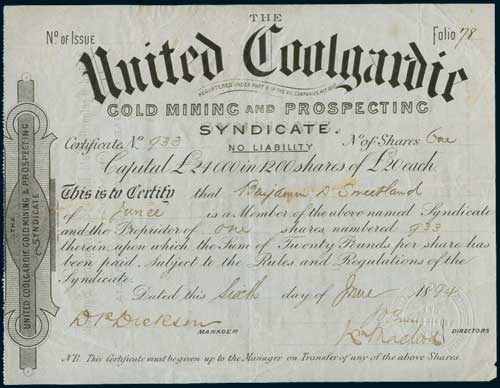 THE
Nº OF ISSUE
Folio 78
United Coolgardie
REGISTERED UNDER PART II OF THE VIC. COMPANIES ACT 1890
GOLD MINING AND PROSPECTING
SYNDICATE.
NO LIABILITY
Certificate Nº 933
Nº of Shares One
Capital £24000 in 1200 shares of £20 each.
This is to Certify that Benjamin D Sweetland
of Junee is a Member of the above named Syndicate
and the Proprietor of one shares numbered 933
therein, upon which the Sum of Twenty Pounds per share has
been paid, subject to the Rules and Regulations of the
Syndicate.
Dated this Sixth day of June 1894
D. R. Dickson
MANAGER
DIRECTORS
NB. This Certificate must be given up to the Manager on Transfer of any of the above Shares.
THE
UNITED COOLGARDIE GOLD MINING & PROSPECTING
SYNDICATE